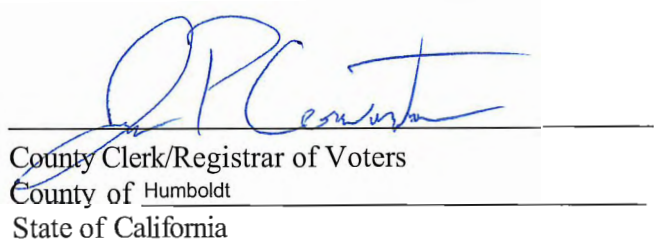 County Clerk/Registrar of Voters
County of Humboldt
State of California